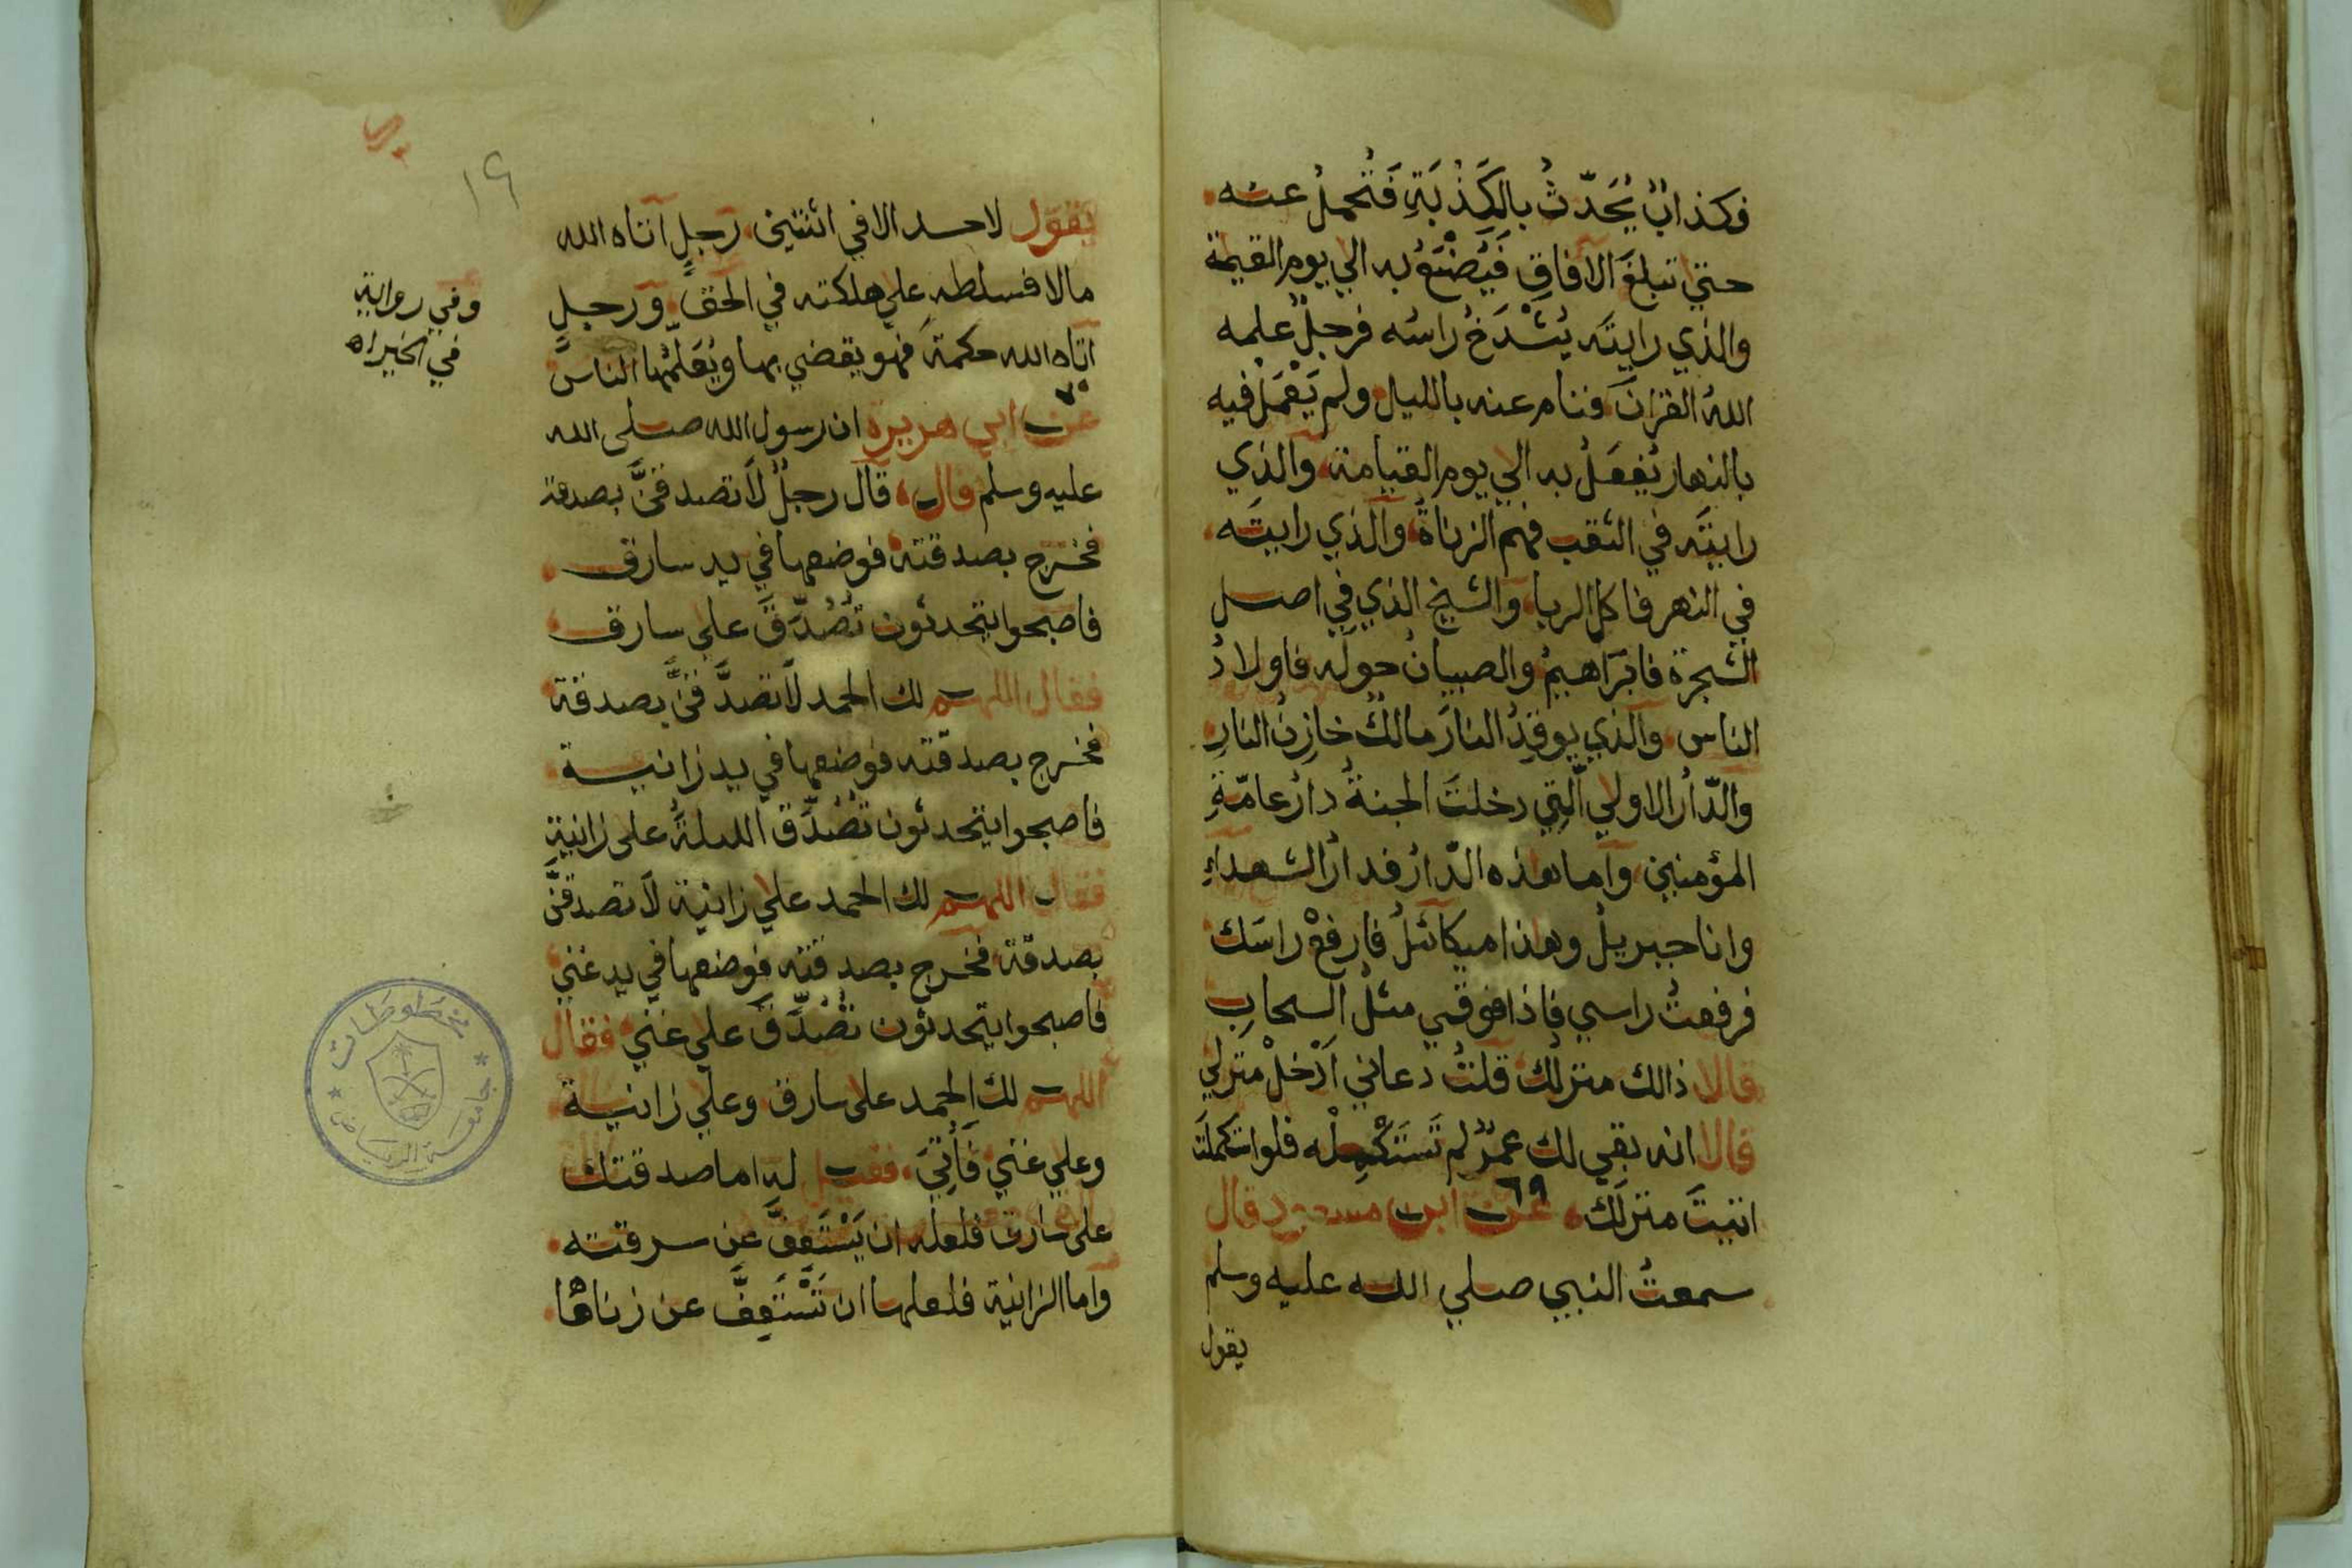 فكذابٌ يُحَدّثُ بالكَذْبَةِ فَتُحْمَلُ عنه
حتي تبلغَ الافاقِ فَيُصْنَعُ به الي يوم القيمة
والذي رايتَه يُشْدَخُ راسُه فرجلٌ علمه
اللهُ القرانَ فنام عنه بالليل ولم يَعْمَلْ فيه
بالنهار يُفعَلُ به الي يوم القيامة والذي
رايتَه في الثقب فهم الزناةُ والذي رايتَه
في النهر فاكل الربا والشيخ الذي في اصل
الشجرة فابرَاهيمُ والصبيانُ حولَه فاولادُ
الناس والذي يوقِدُ النارَ مالكٌ خازِنُ النارِ
والدّارُ الاولي الّتِي دخلتَ الجنةُ دارُ عامّةِ
المؤمنين واما هذه الدّارُ فدارُ الشهداءِ
وانا جبريلُ وهذا ميكائلُ فارفعْ راسَك
فرفعتُ راسي فاذا فوقي مثلُ السحابِ
قالا ذالك منزلك قلتُ دعاني اَدْخلْ منزلي
قالا انه بقي لك عمرٌ لم تَسْتَكْمِلْه فلو استكملتَ
اتيتَ منزلَك ٦٩ عن ابن مسعود قال
سمعتُ النبي صلي الله عليه وسلم
يقول
١٩
يقول لا حسد الا في اثنتين رَجلٍ اتاه الله
مالا فسلطه علي هلكته في الحقّ ورجلٍ
اتاه الله حكمة فهو يقضي بها ويُعَلّمُها الناسَ
وفي رواية
في الخير اه
٧٠
عن ابي هريرة ان رسول الله صلى الله
عليه وسلم قال قال رجلٌ لَاتصدقنَّ بصدقة
فخرج بصدقته فوضعها في يد سارق
فاصبحوا يتحدثون تُصُدِّقَ علي سارق
فقال اللهم لك الحمد لَاتصدَّقنَّ بصدقة
فخرج بصدقته فوضعها في يد زانية
فاصبحوا يتحدثون تُصُدِّقَ الليلةَ على زانية
فقال اللهم لك الحمد علي زانية لَاتصدقنَّ
بصدقة فخرج بصدقته فوضعها في يد غني
فاصبحوا يتحدثون تُصُدِّقَ علي غني فقال
اللهم لك الحمد على سارق وعلي زانية
وعلي غني فَاُتِيَ فقيل له اما صدقتك
على سارق فلعله ان يَسْتَعِفَّ عن سرقته
واما الزانية فلعلها ان تَسْتَعِفَّ عن زناها
مخطوطات
جامعة الرياض